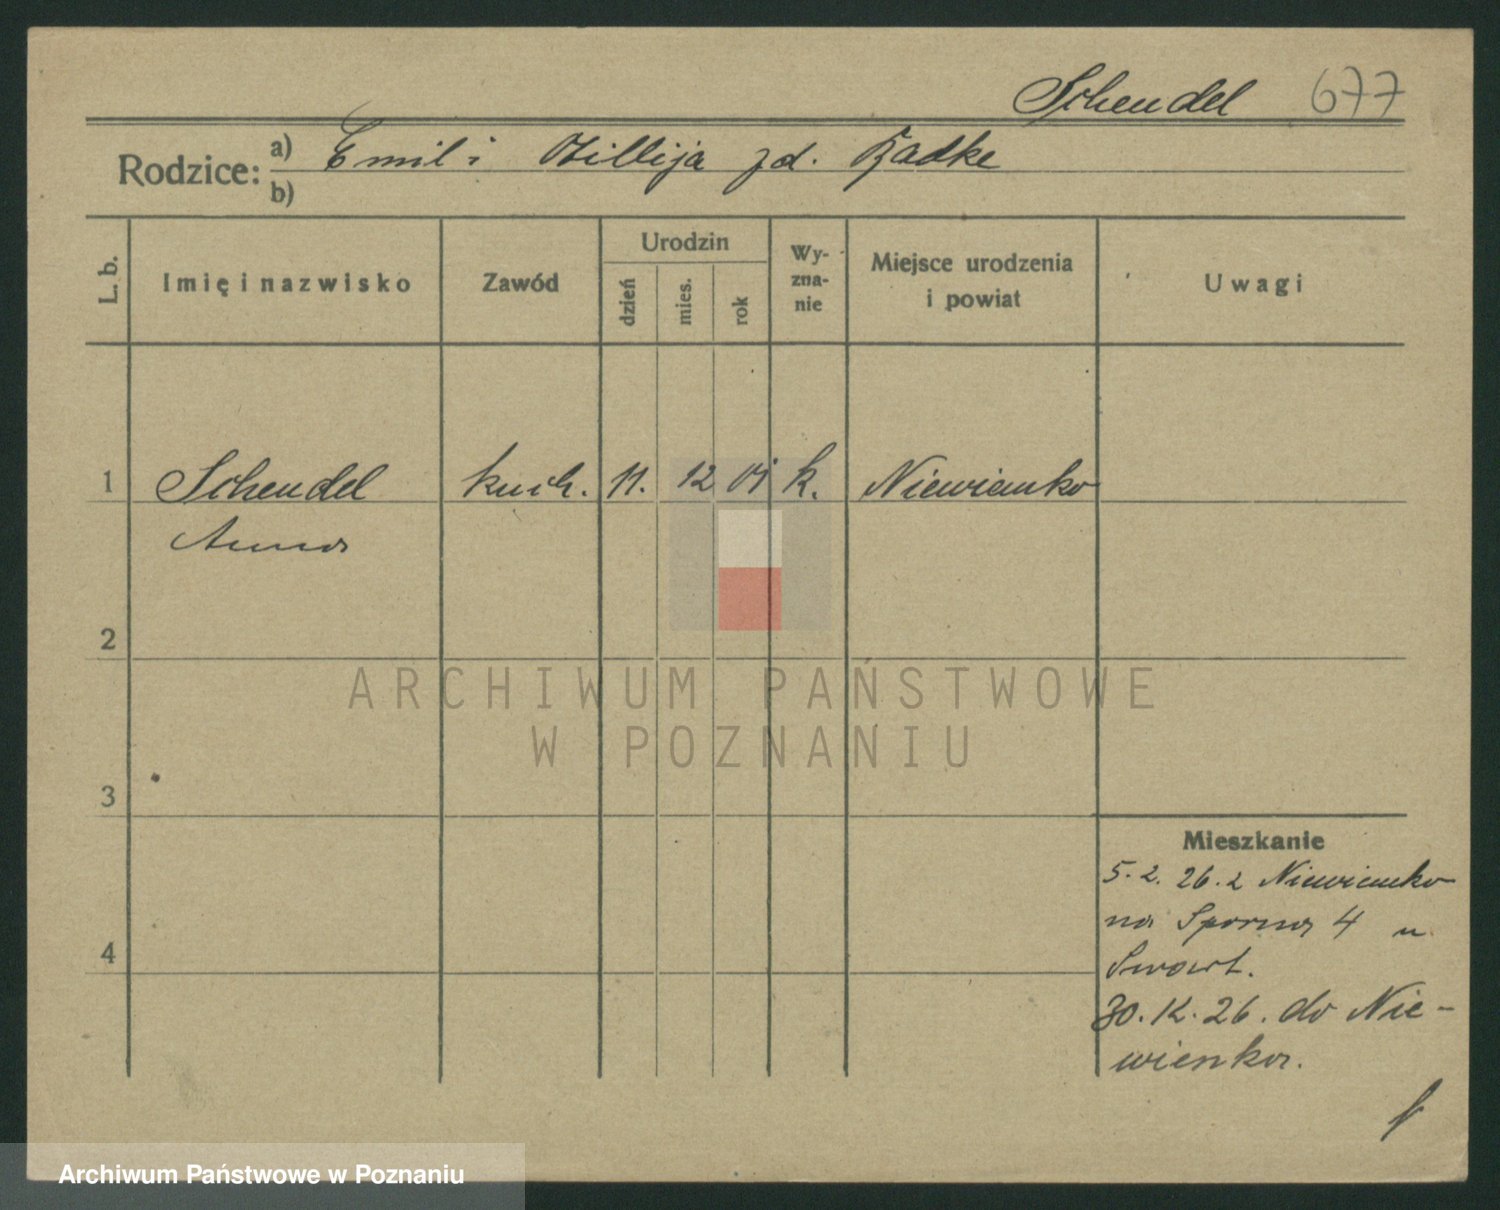 Schendel 677
Rodzice: a) Emil i Ottilija zd. Radke
b)
L. b. Imię i nazwisko Zawód Urodzin dzień mies. rok Wyznanie Miejsce urodzenia i powiat Uwagi
1 Schendel kuch. 11. 12 01 k. Niewiemko
Anna
2
3
4
Mieszkanie
5. 2. 26. z Niewiemko
na Sporna 4 u
30. 12. 26. do Nie-
wienko.
ARCHIWUM PAŃSTWOWE
W POZNANIU
Archiwum Państwowe w Poznaniu